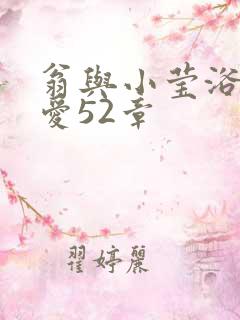 翁與小莹浴
愛52章
翟婷麗